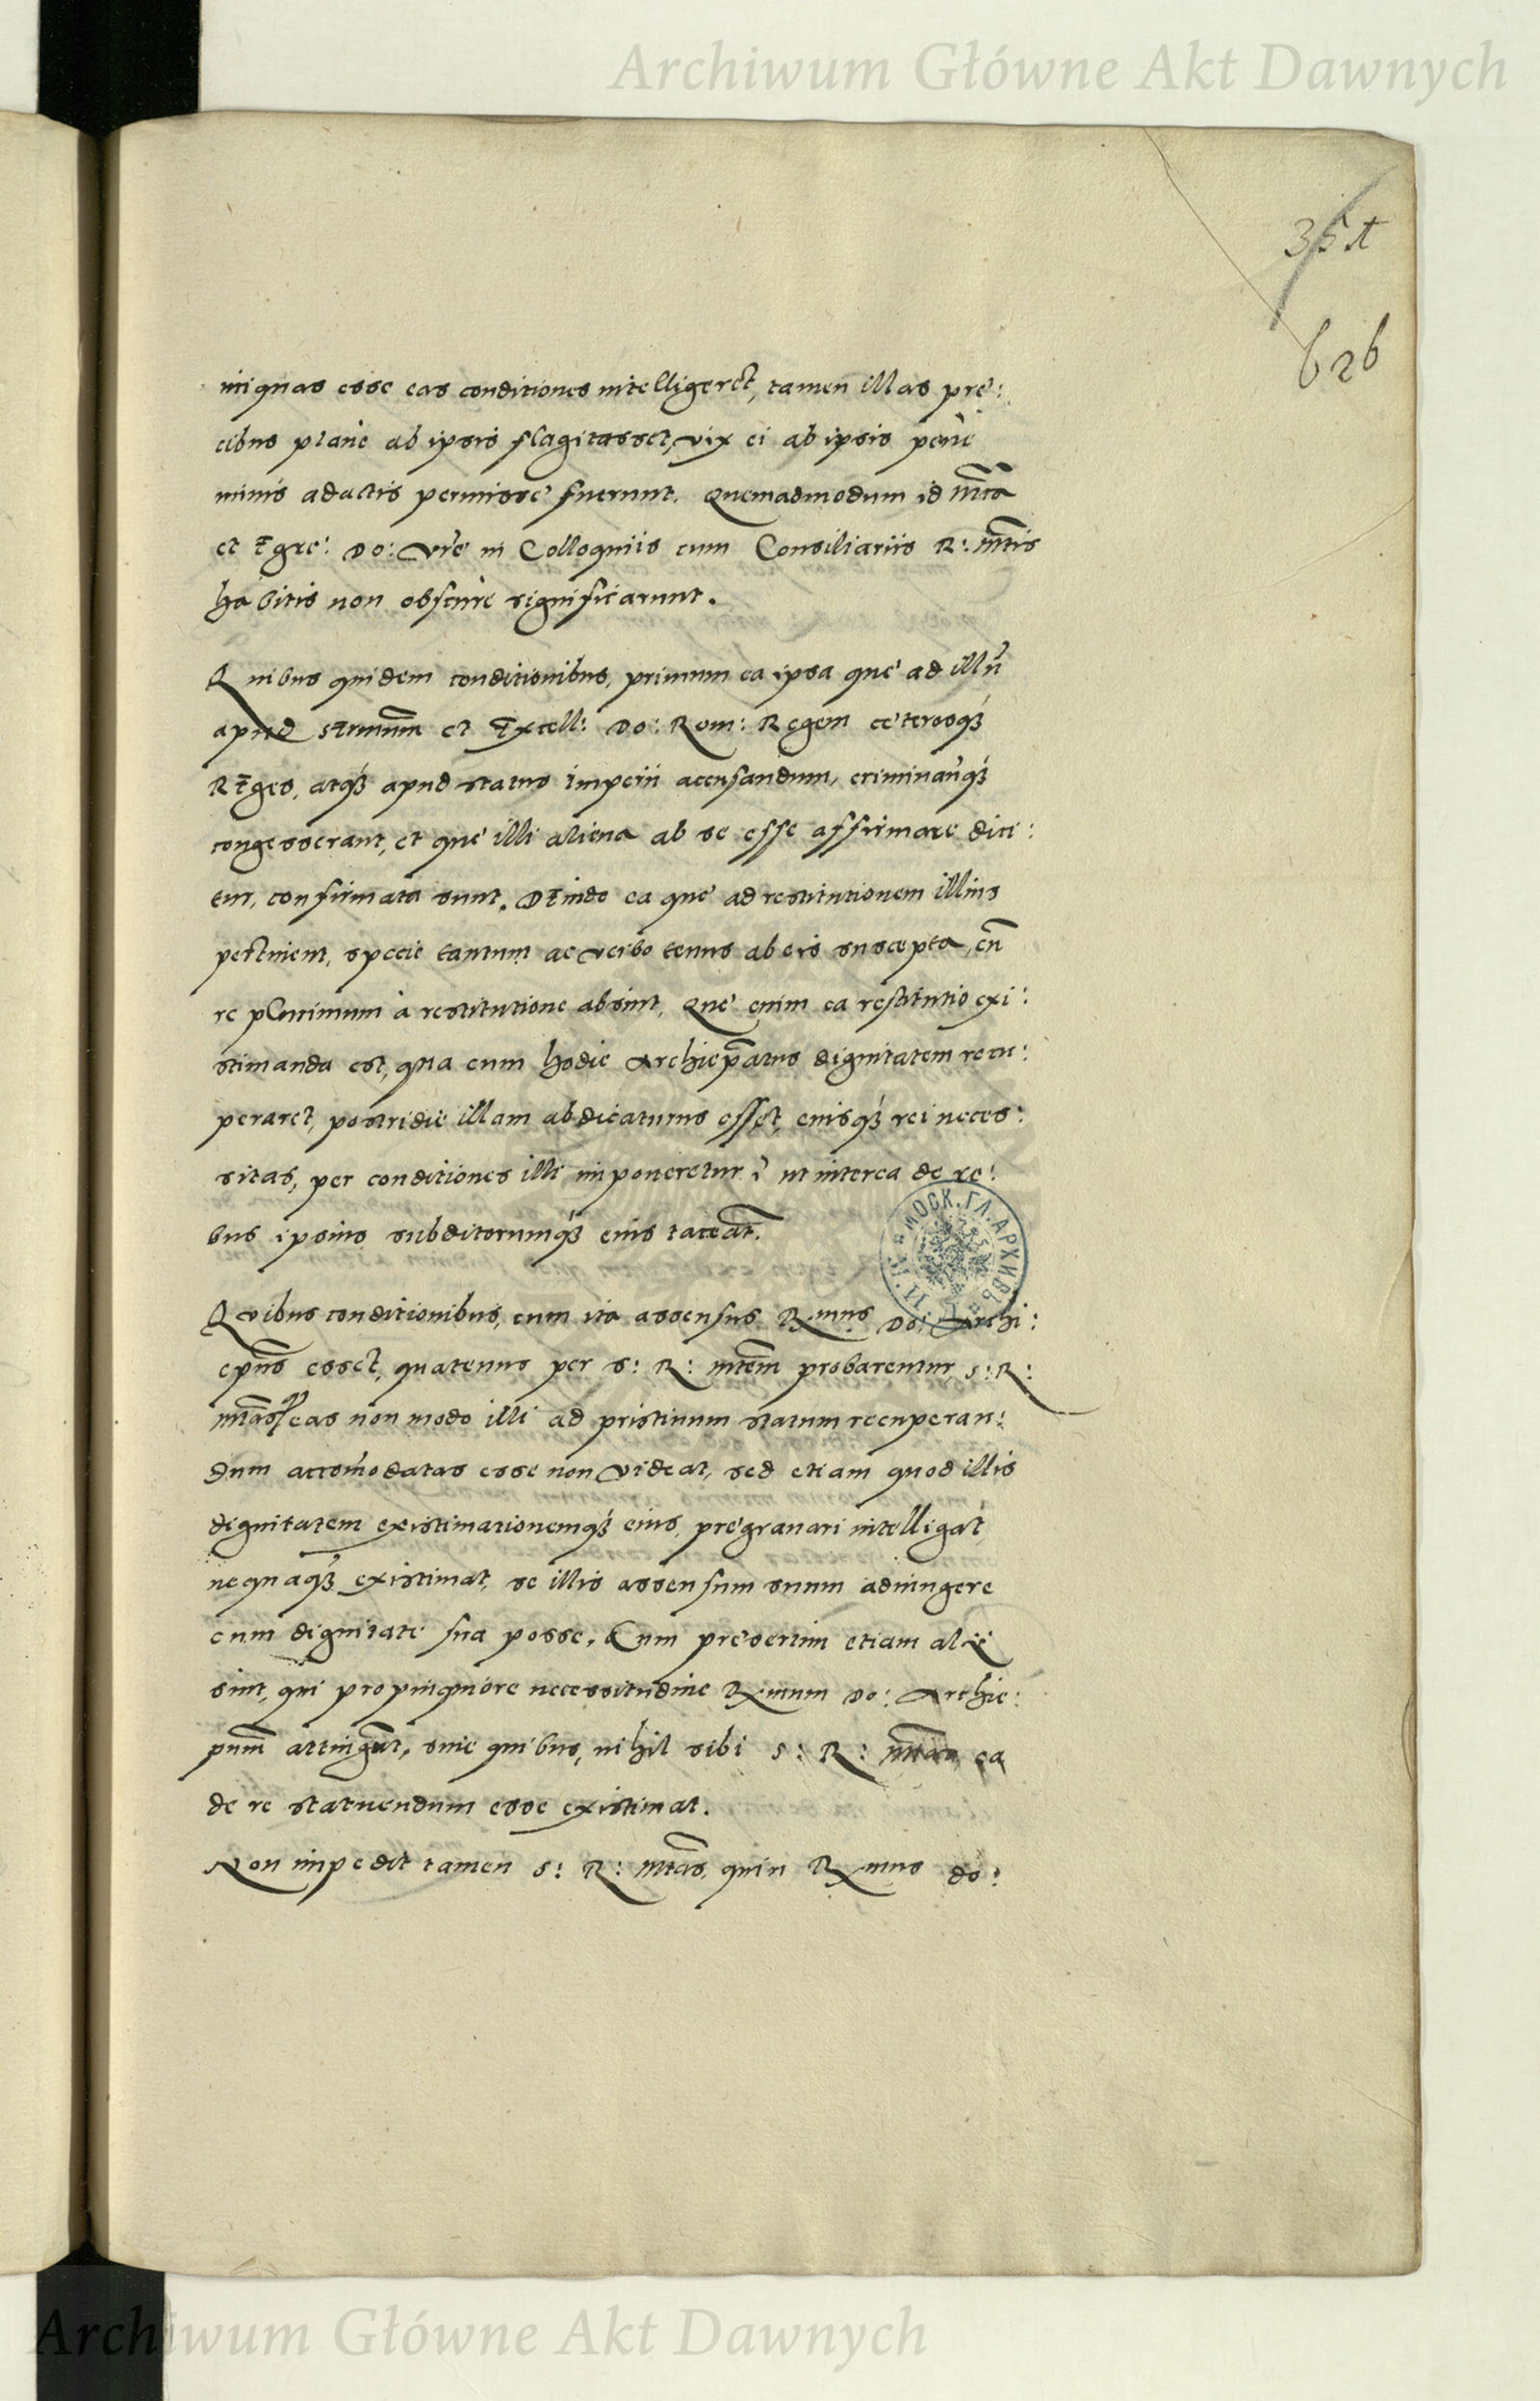 Archiwum Główne Akt Dawnych
35 A
626
iniquas esse eas conditiones intelligeret, tamen illas pre:
cibus planè ab ipsis flagitasset, vix ei ab ipsis penè
minis adactis permissę fuerunt. Quemadmodum id Mcę
et Egrę: Do: Vrę in Colloquiis cum Consiliariis R: Mtis
habitis non obscurè significarunt.
Quibus quidem conditionibus, primum ea ipsa quę ad illū
apud Sermum et Excell: Do: Rom: Regem cęterosq;
Reges, atq; apud status Imperii accusandum, criminanq;
congesserant, et quę illi aliena ab se esse affirmare dici:
tur, confirmata sunt. Deinde ea quę ad restitutionem illius
pertinent, specie tantum ac verbo tenus ab eis suscepta, cū
re plurimum à restitutione absint. Quę enim ea restitutio exi:
stimanda est, qua cum hodie Archiepatus dignitatem recu:
peraret, postridie illam abdicaturus esset, eiusq; rei neces:
sitas, per conditiones illi imponeretur? ut interea de re:
bus ipsius subditorumq; eius taceat.
Quibus conditionibus, cum ita assensus Rmus Do: Archi:
epus esset, quatenus per S: R: Mtem probarentur S: R:
Mtas eas non modo illi ad pristinum statum recuperan:
dum accomodatas esse non videat, sed etiam quod illis
dignitatem existimationemq; eius, pręgravari intelligat,
nequaq; existimat, se illis assensum suum adiungere
cum dignitate sua posse. Cum pręsertim etiam alii
sint, qui propinquiore necessitudine Rmum Do: Archie:
pum attingūt, sine quibus, nihil sibi S: R: Mtas ea
de re statuendum esse existimat.
Non impedit tamen S: R: Mtas, quin Rmus Do:
МОСК. ГЛ. АРХИВЪ
Archiwum Główne Akt Dawnych